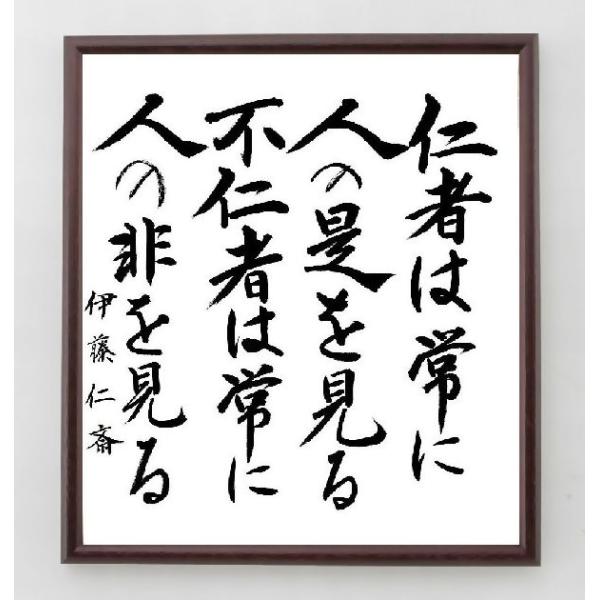 仁者は常に
人の是を見る
不仁者は常に
人の非を見る
伊藤仁斎